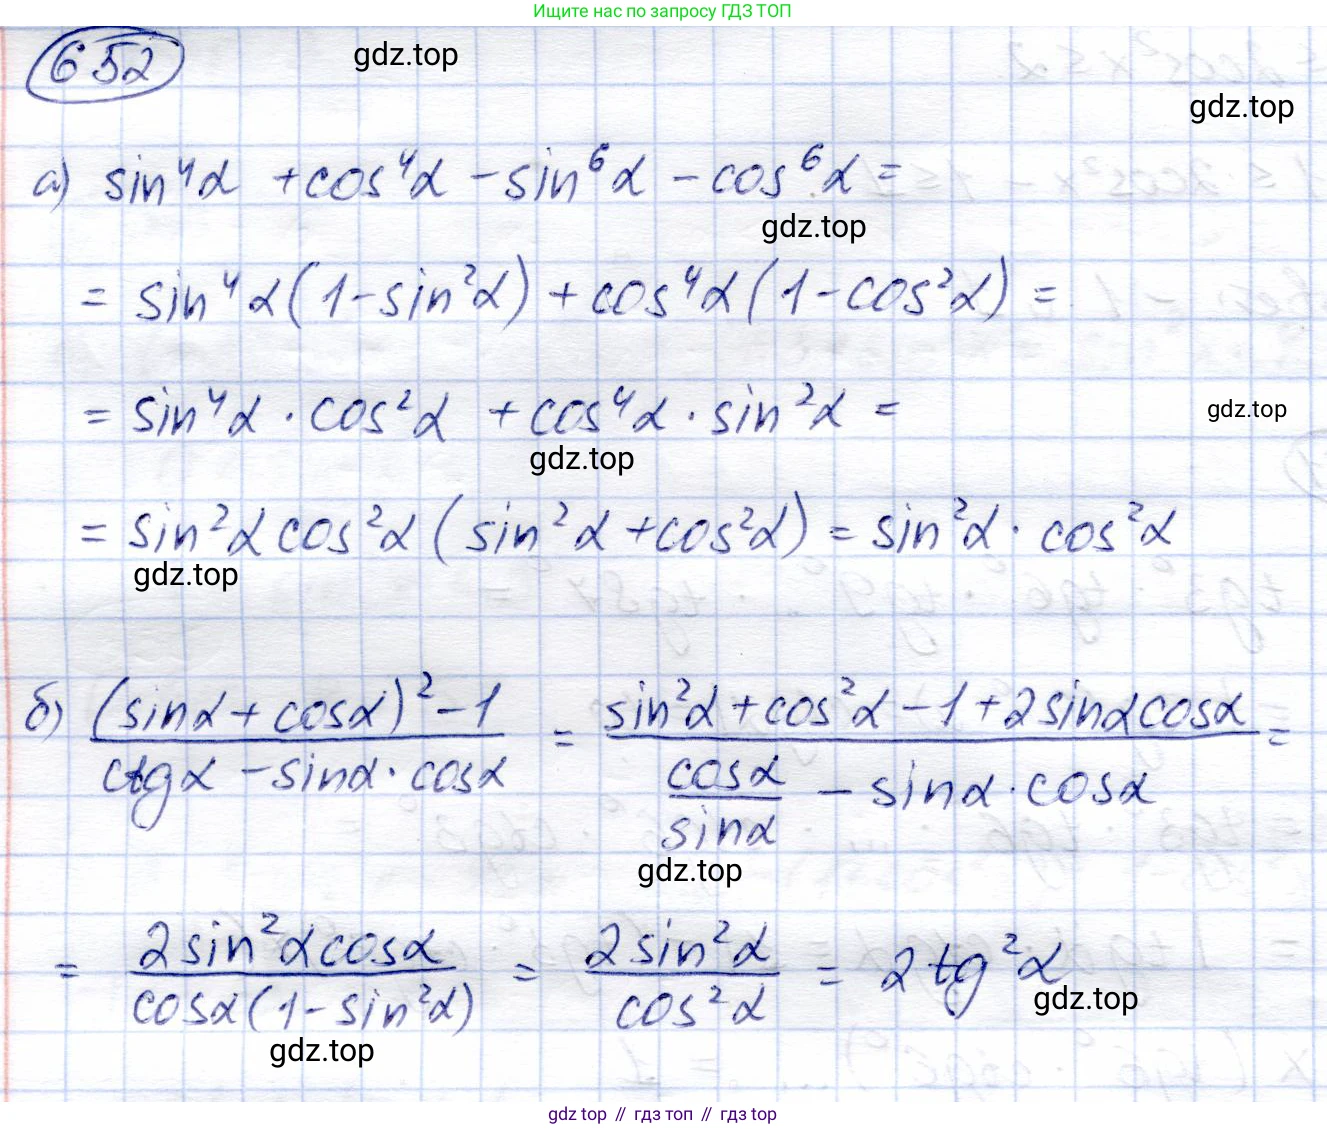 Ищите нас по запросу ГДЗ ТОП
652
gdz.top
gdz.top
а) sin⁴α + cos⁴α - sin⁶α - cos⁶α =
gdz.top
= sin⁴α(1-sin²α) + cos⁴α(1-cos²α) =
= sin⁴α · cos²α + cos⁴α · sin²α =
gdz.top
gdz.top
= sin²α cos²α (sin²α + cos²α) = sin²α · cos²α
gdz.top
б) ((sinα + cosα)² - 1)/(ctgα - sinα · cosα) = (sin²α + cos²α - 1 + 2sinαcosα)/(cosα/sinα - sinα · cosα) =
gdz.top
= (2sin²αcosα)/(cosα(1-sin²α)) = (2sin²α)/(cos²α) = 2tg²α
gdz.top
gdz.top
gdz top // гдз топ // гдз top